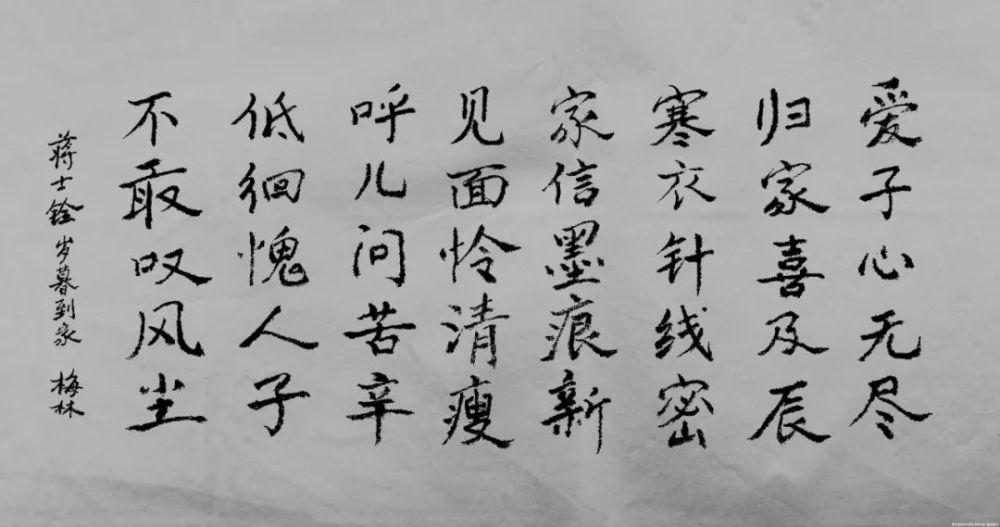 爱子心无尽
归家喜及辰
寒衣针线密
家信墨痕新
见面怜清瘦
呼儿问苦辛
低徊愧人子
不敢叹风尘
蒋士铨岁暮到家 梅林